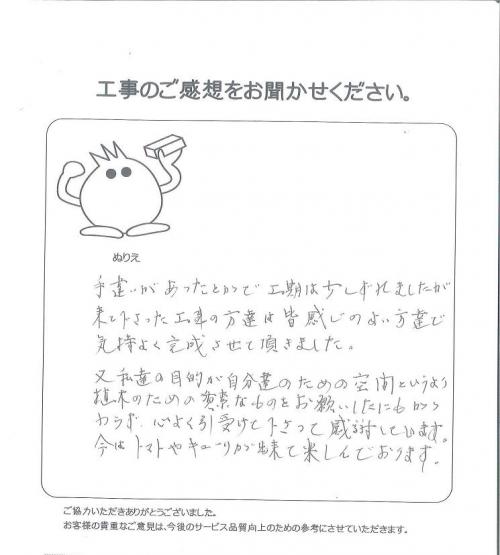 工事のご感想をお聞かせください。
ぬりえ
手違いがあったとかで工期は少しずれましたが
来て下さった工事の方達は皆感じのよい方達で
気持よく完成させて頂きました。
又私達の目的が自分達のための空間というより
植木のための簡素なものをお願いしたにもかか
わらず、心よく引受けて下さって感謝しています。
今はトマトやキューリが出来て楽しんでおります。
ご協力いただきありがとうございました。
お客様の貴重なご意見は、今後のサービス品質向上のための参考にさせていただきます。